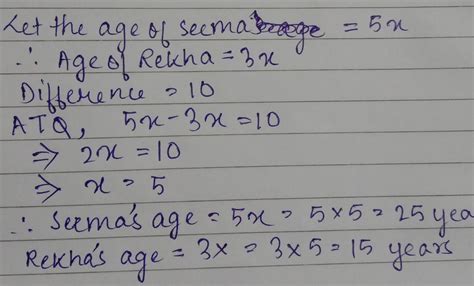 Let the age of seema = 5x
∴ Age of Rekha = 3x
Difference = 10
ATQ, 5x - 3x = 10
⇒ 2x = 10
⇒ x = 5
∴ Seema's age = 5x = 5 × 5 = 25 yea
Rekha's age = 3x = 3 × 5 = 15 years